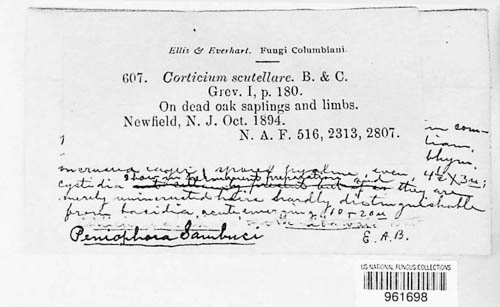 Ellis & Everhart. Fungi Columbiani.
607. Corticium scutellare. B. & C.
Grev. I, p. 180.
On dead oak saplings and limbs.
Newfield, N. J. Oct. 1894.
N. A. F. 516, 2313, 2807.
in com-
thym.
spores hyaline, even, 4½ X 3 u;
cystidia they are
merely unincrusted hairs hardly distinguishable
from basidia, acute, emerging 10-20 u
Peniophora Sambuci
E. A. B.
US NATIONAL FUNGUS COLLECTIONS
961698